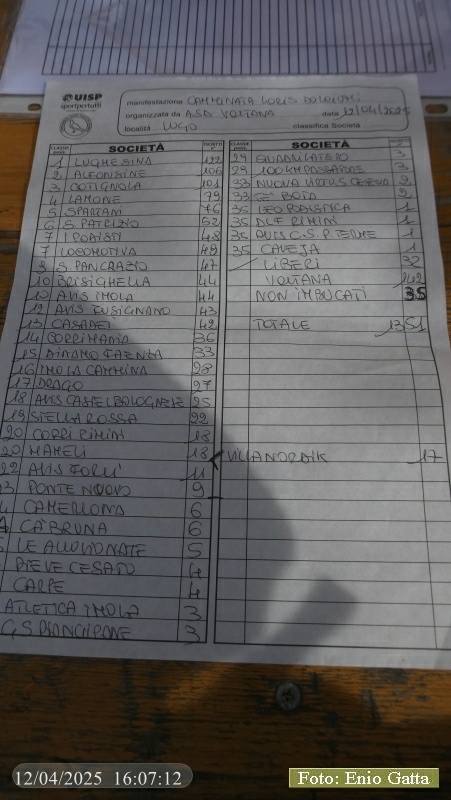 UISP
sportpertutti
manifestazione CAMMINATA LORIS DALPIVALI
organizzata da A.S.D. VOLTANA data 12/04/2025
località LUGO classifica Società
SOCIETÀ
1 LUGHESINA 122
2 ALFONSINE 106
3 COTIGNOLA 101
4 LAMONE 79
5 SPARTANI 76
6 S. PATRIZIO 52
7 I PODISTI 48
7 LOCOMOTIVA 48
9 S. PANCRAZIO 47
10 BRISIGHELLA 44
10 AVIS IMOLA 44
12 AVIS FUSIGNANO 43
13 CASADEI 42
14 CORRIMANIA 36
15 DINAMO FAENZA 33
16 IMOLA CAMMINA 28
17 DRAGO 27
18 AVIS CASTELBOLOGNESE 25
19 STELLA ROSSA 22
20 CORRI RIMINI 18
20 MAMELI 18
22 AVIS FORLI' 11
23 PONTE NUOVO 9
CAMERLONA 6
CA'BRUNA 6
LE ALLUVIONATE 5
PIEVE CESATO 4
CARPE 4
ATLETICA IMOLA 3
G.S. PIANGIPANE 3
SOCIETÀ
29 QUADRILATERO 3
29 100 KM PASSATORE 3
33 NUOVA VIRTUS CESENA 2
33 BOTA 2
35 LEO PODISTICA 1
35 DLF RIMINI 1
35 AVIS C.S.P. TERME 1
35 CAVEJA 1
LIBERI 32
VOLTANA 142
NON IMBUCATI 35
TOTALE 1351
VILLANORDIK 17
12/04/2025 16:07:12
Foto: Enio Gatta